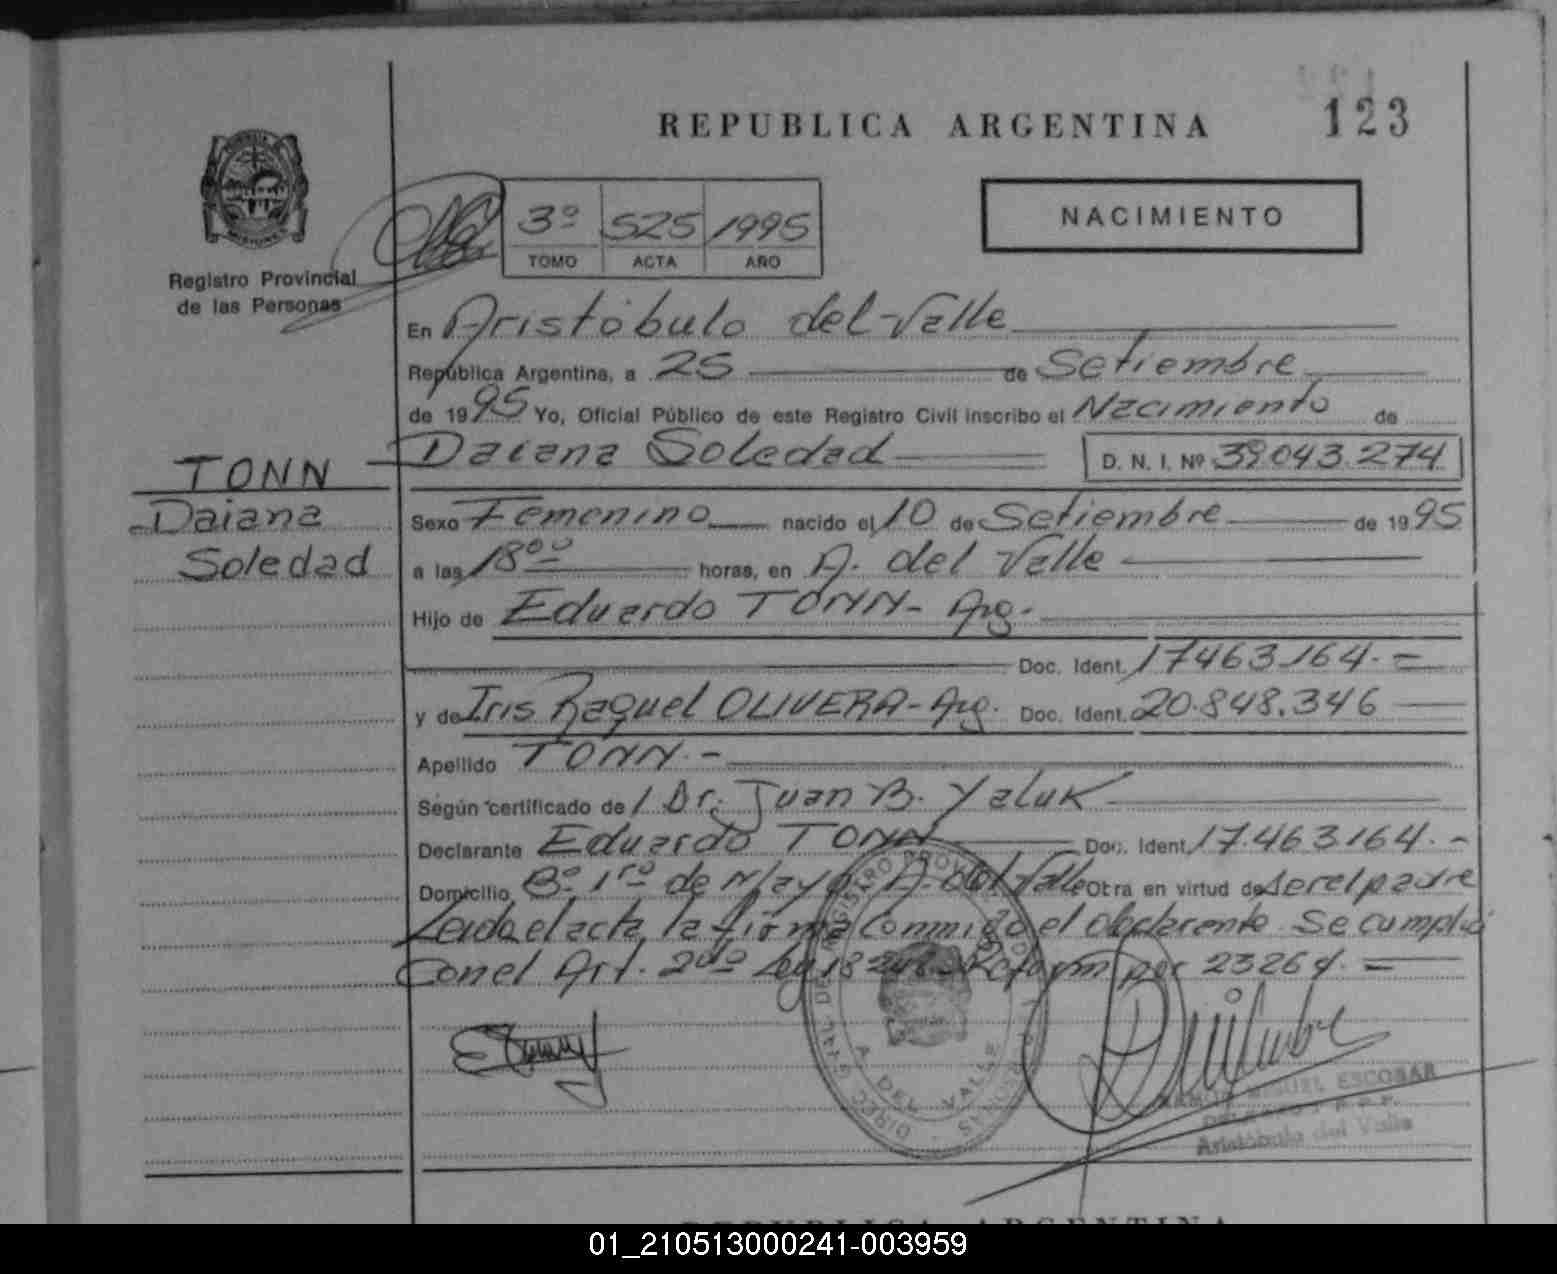 REPUBLICA ARGENTINA
123
Registro Provincial
de las Personas
3º 525 1995
TOMO ACTA AÑO
NACIMIENTO
En Aristóbulo del Valle
República Argentina, a 25 de Setiembre
de 1995 Yo, Oficial Público de este Registro Civil inscribo el Nacimiento de
Daiana Soledad D. N. I. Nº 39.043.274
TONN
Daiana
Soledad
Sexo Femenino nacido el 10 de Setiembre de 1995
a las 18ºº horas, en A. del Valle
Hijo de Eduardo TONN - Arg.
Doc. Ident. 17463.164.=
y de Iris Raquel OLIVERA - Arg. Doc. Ident. 20.848.346
Apellido TONN.-
Según certificado de Dr. Juan B. Yaluk
Declarante Eduardo TONN Doc. Ident. 17.463.164.-
Domicilio Bº 1rº de Mayo A. del Valle Otra en virtud de ser el padre
Leida el acta, la firma conmigo el declarante. Se cumplió
con el Art. 2dº Ley 18248 Reform por 23264.=
DIREC. GRAL. DEL REGISTRO PROV. DE LAS PERSONAS
A. DEL VALLE
RAMON MIGUEL ESCOBAR
Aristóbulo del Valle
REPUBLICA ARGENTINA
01_210513000241-003959